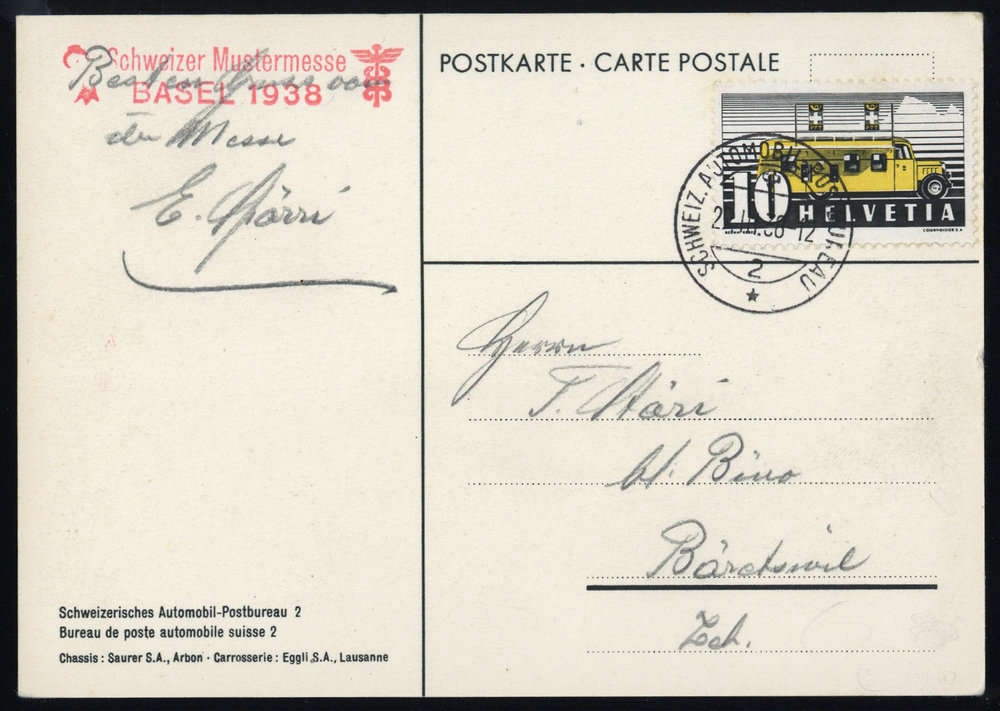 Schweizer Mustermesse
BASEL 1938
Besten Gruss von
der Messe
E.
POSTKARTE · CARTE POSTALE
10 HELVETIA
COURVOISIER S.A.
SCHWEIZ. AUTOMOBIL-POSTBUREAU
2
Herrn
Bäretswil
Zch.
Schweizerisches Automobil-Postbureau 2
Bureau de poste automobile suisse 2
Chassis : Saurer S.A., Arbon · Carrosserie : Eggli S.A., Lausanne